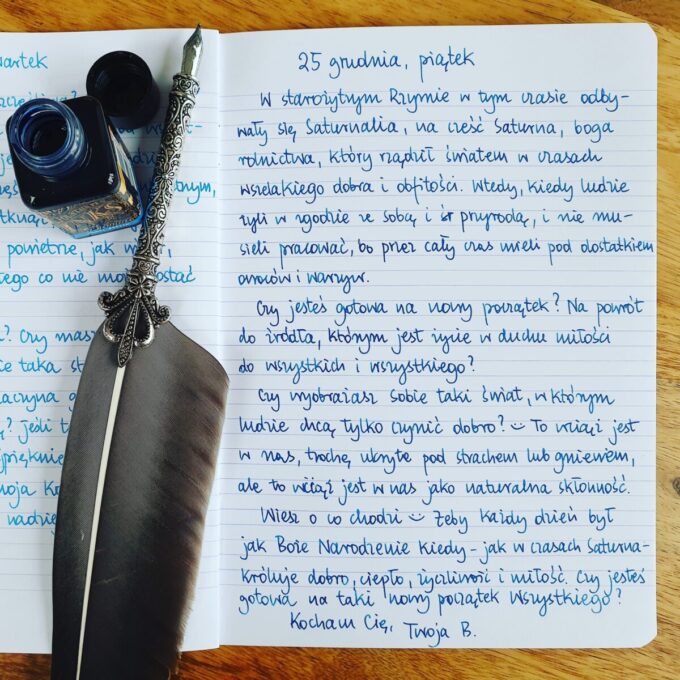 artek
powietrze, jak
ego co nie ostać
? Czy masz
ie taka
aczyna
ą? jeśli t
woja
25 grudnia, piątek
W starożytnym Rzymie w tym czasie odby-
wały się Saturnalia, na cześć Saturna, boga
rolnictwa, który rządził światem w czasach
wszelakiego dobra i obfitości. Wtedy, kiedy ludzie
żyli w zgodzie ze sobą i przyrodą, i nie mu-
sieli pracować, bo przez cały czas mieli pod dostatkiem
owoców i warzyw.
Czy jesteś gotowa na nowy początek? Na powrót
do źródła, którym jest życie w duchu miłości
do wszystkich i wszystkiego?
Czy wyobrażasz sobie taki świat, w którym
ludzie chcą tylko czynić dobro? To wciąż jest
w nas, trochę ukryte pod strachem lub gniewem,
ale to wciąż jest w nas jako naturalna skłonność.
Wiesz o co chodzi Żeby każdy dzień był
jak Boże Narodzenie kiedy - jak w czasach Saturna-
króluje dobro, ciepło, życzliwość i miłość. Czy jesteś
gotowa na taki nowy początek Wszystkiego?
Kocham Cię, Twoja B.